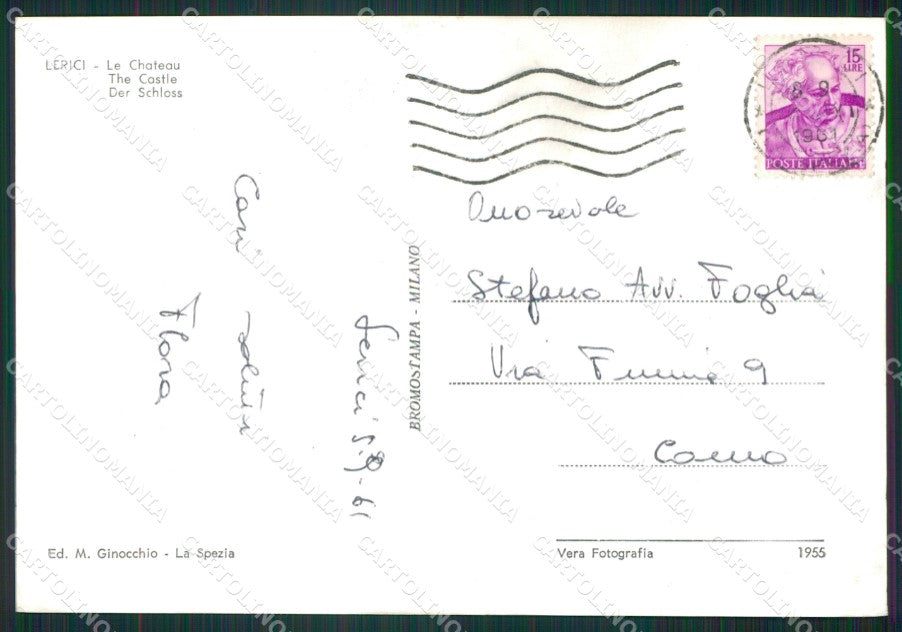 LERICI - Le Chateau
The Castle
Der Schloss
Cari
saluti
Flora
Lerici 8.9-61
BROMOSTAMPA - MILANO
15
LIRE
POSTE ITALIANE
8 9
1961
Onorevole
Stefano Avv. Foglia
Via 9
Como
Ed. M. Ginocchio - La Spezia
Vera Fotografia 1955
CARTOLINOMANIA